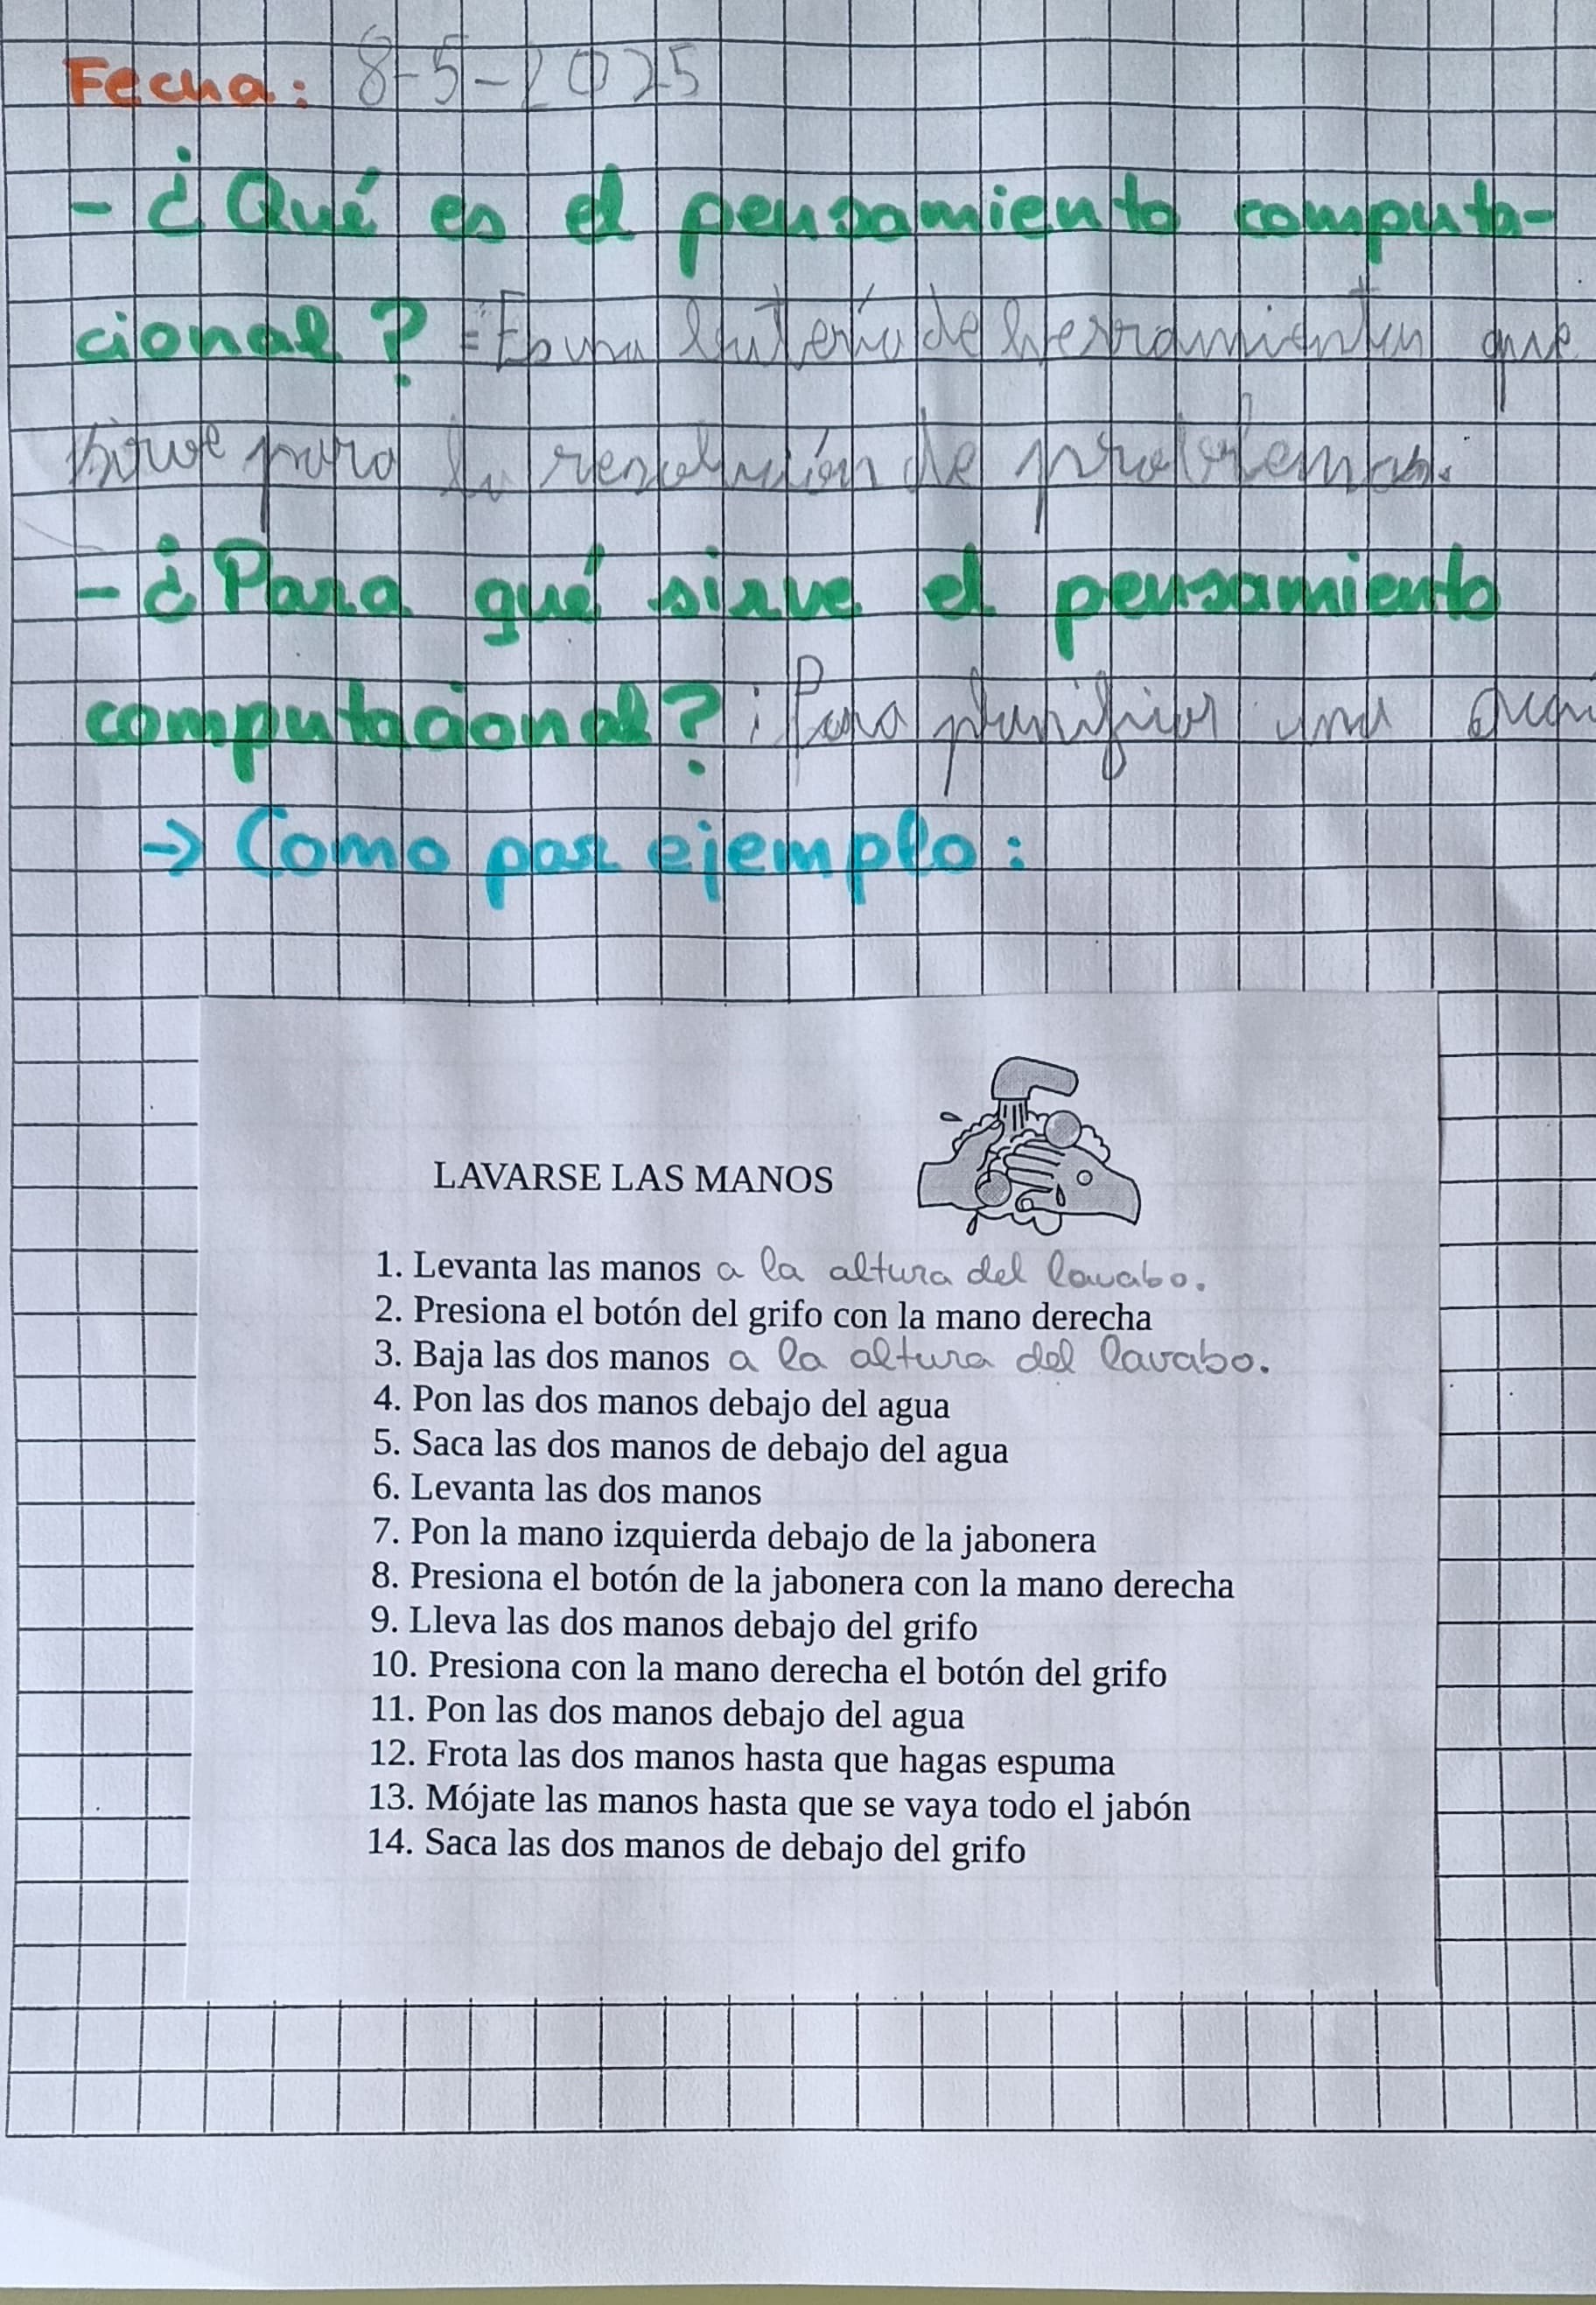 Fecha: 8-5-2025
- ¿Qué es el pensamiento computa-
cional? = Es una batería de herramientas que
sirve para la resolución de problemas.
- ¿Para qué sirve el pensamiento
computacional? : Para planificar una
→ Como por ejemplo:
LAVARSE LAS MANOS
1. Levanta las manos a la altura del lavabo.
2. Presiona el botón del grifo con la mano derecha
3. Baja las dos manos a la altura del lavabo.
4. Pon las dos manos debajo del agua
5. Saca las dos manos de debajo del agua
6. Levanta las dos manos
7. Pon la mano izquierda debajo de la jabonera
8. Presiona el botón de la jabonera con la mano derecha
9. Lleva las dos manos debajo del grifo
10. Presiona con la mano derecha el botón del grifo
11. Pon las dos manos debajo del agua
12. Frota las dos manos hasta que hagas espuma
13. Mójate las manos hasta que se vaya todo el jabón
14. Saca las dos manos de debajo del grifo